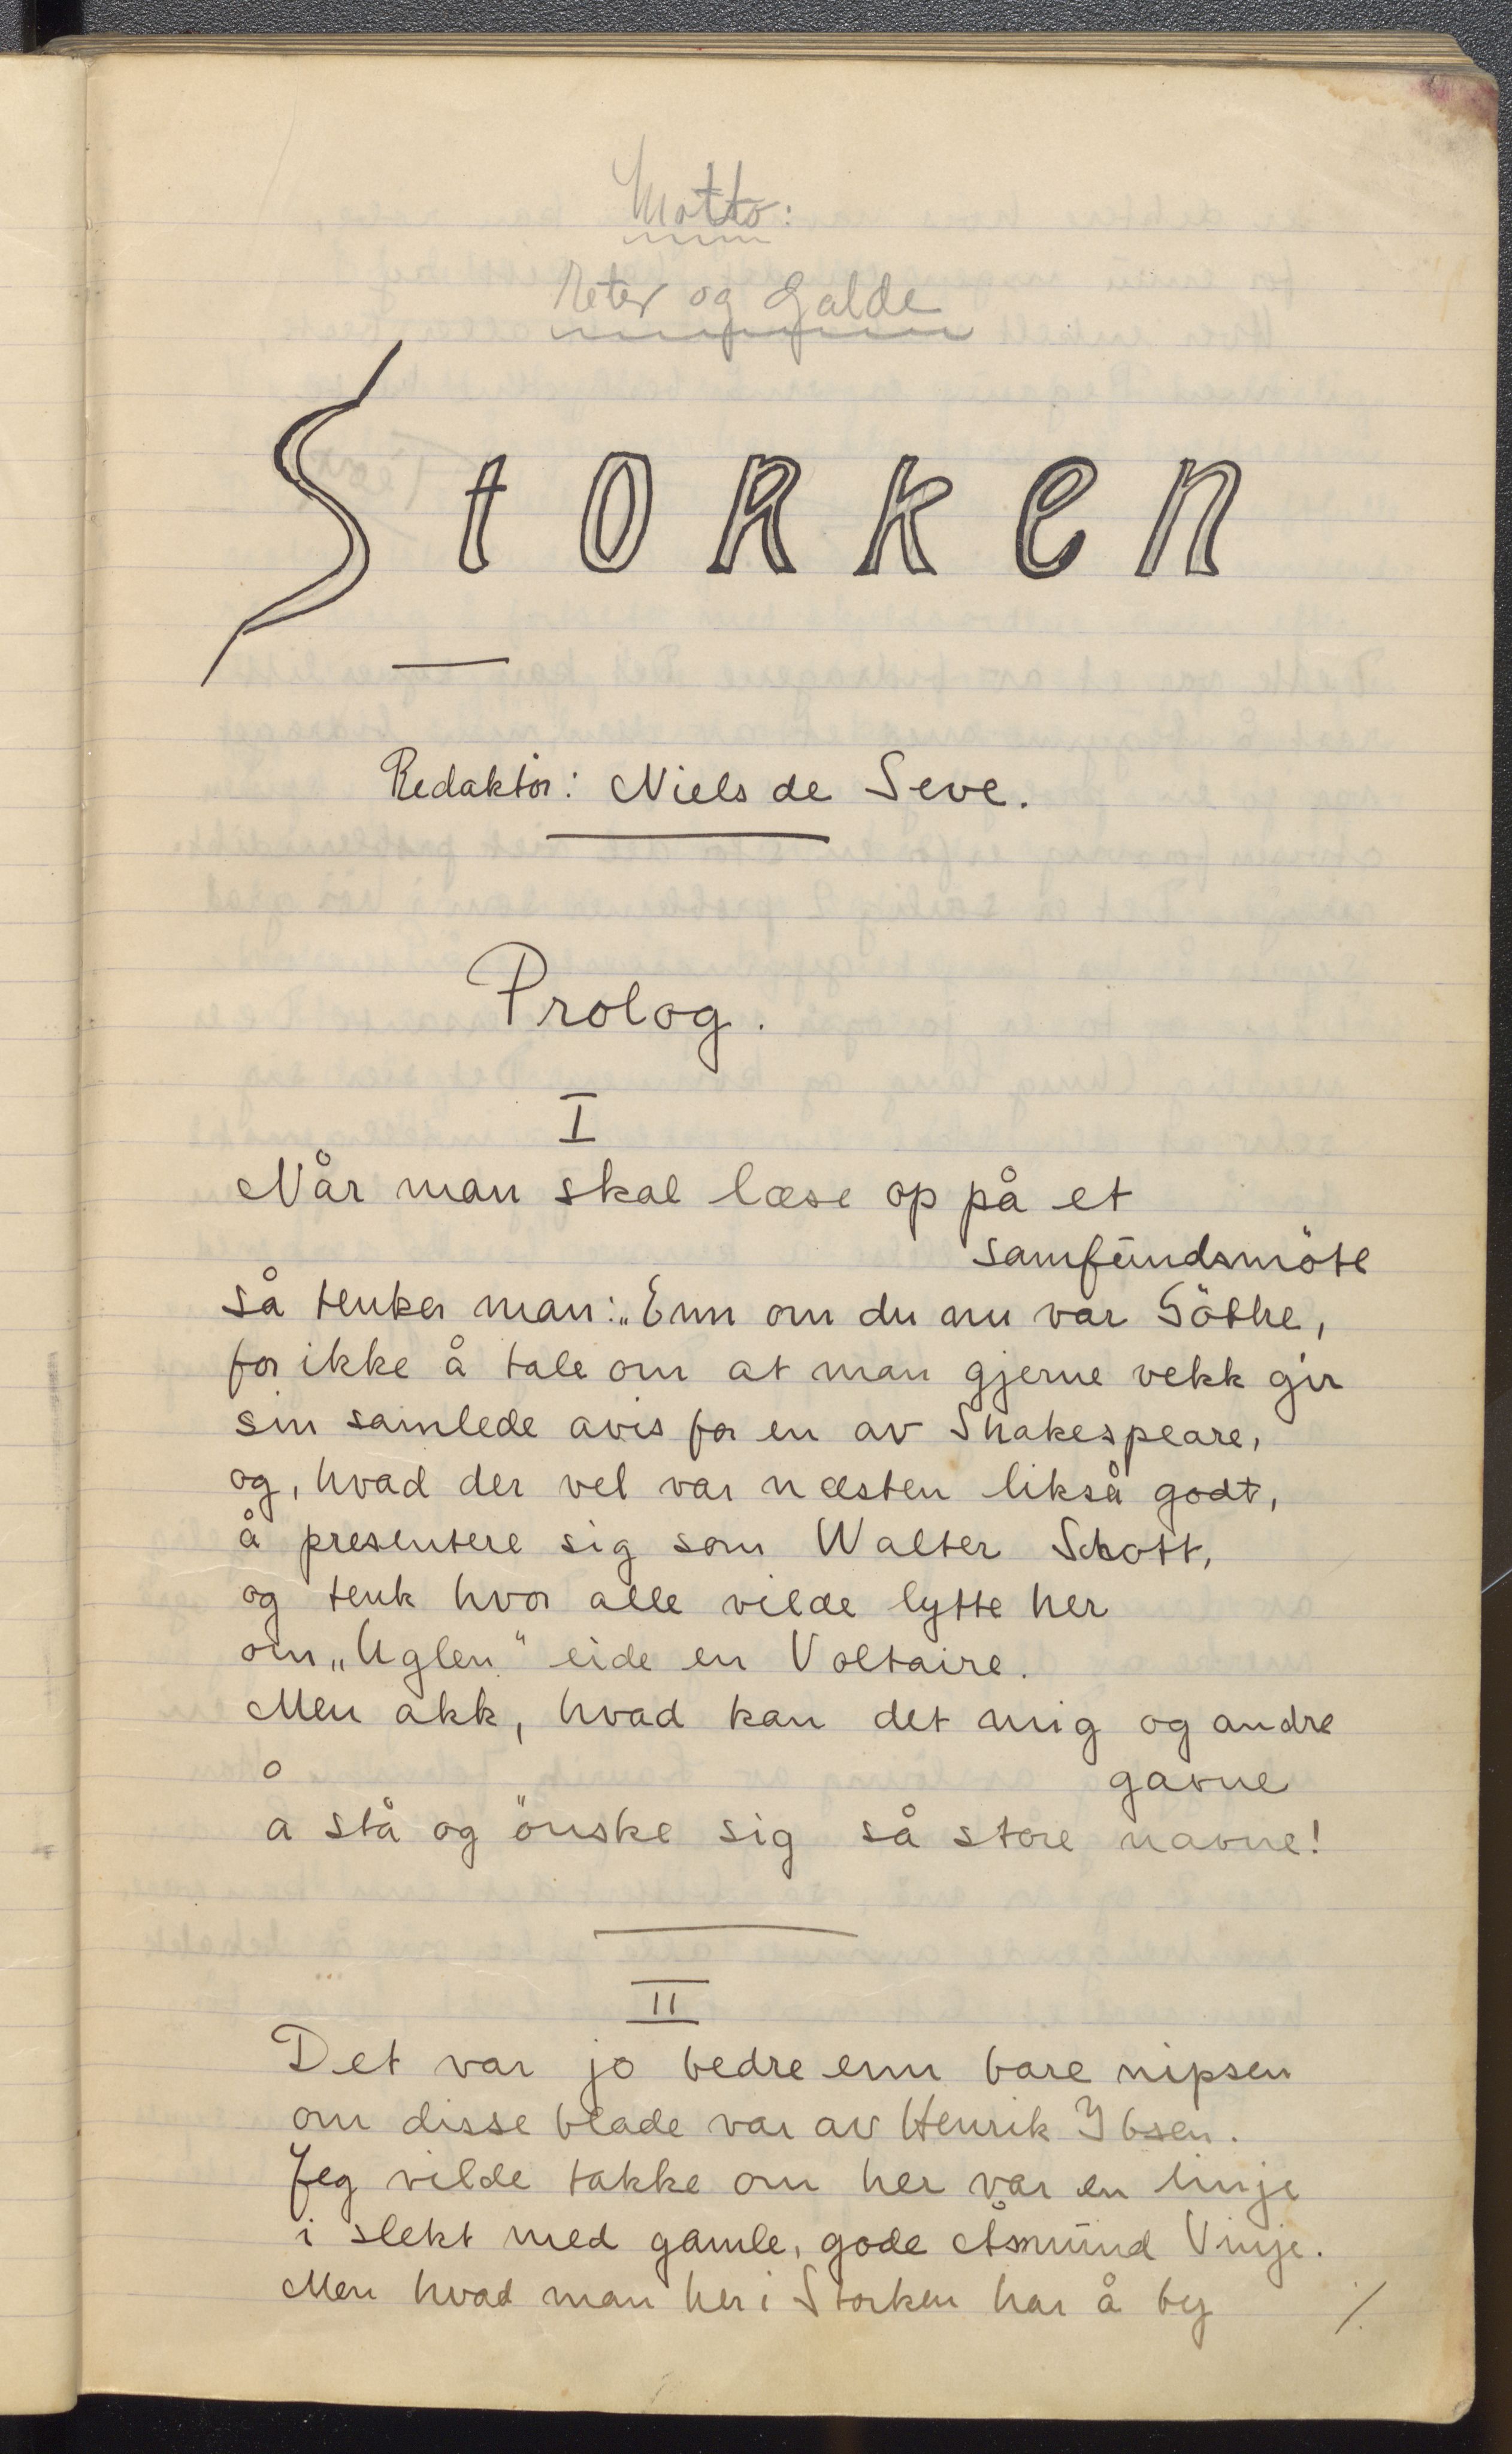 Motto:
Peter og Galde
StoRken
Redaktör: Niels de Seve.
Prolog.
I
Når man skal læse op på et
samfundsmöte
så tenker man: „Enn om du nu var Göthe,
for ikke å tale om at man gjerne vekk gir
sin samlede avis for en av Shakespeare,
og, hvad der vel var næsten likså godt,
å presentere sig som Walter Schott,
og tenk hvor alle vilde lytte her
om „Uglen" eide en Voltaire.
Men akk, hvad kan det mig og andre
gavne
å stå og önske sig så store navne!
II
Det var jo bedre enn bare nipsen
om disse blade var av Henrik Ibsen.
Jeg vilde takke om her var en linje
i slekt med gamle, gode Åsmund Vinje.
Men hvad man her i Storken har å by
./.